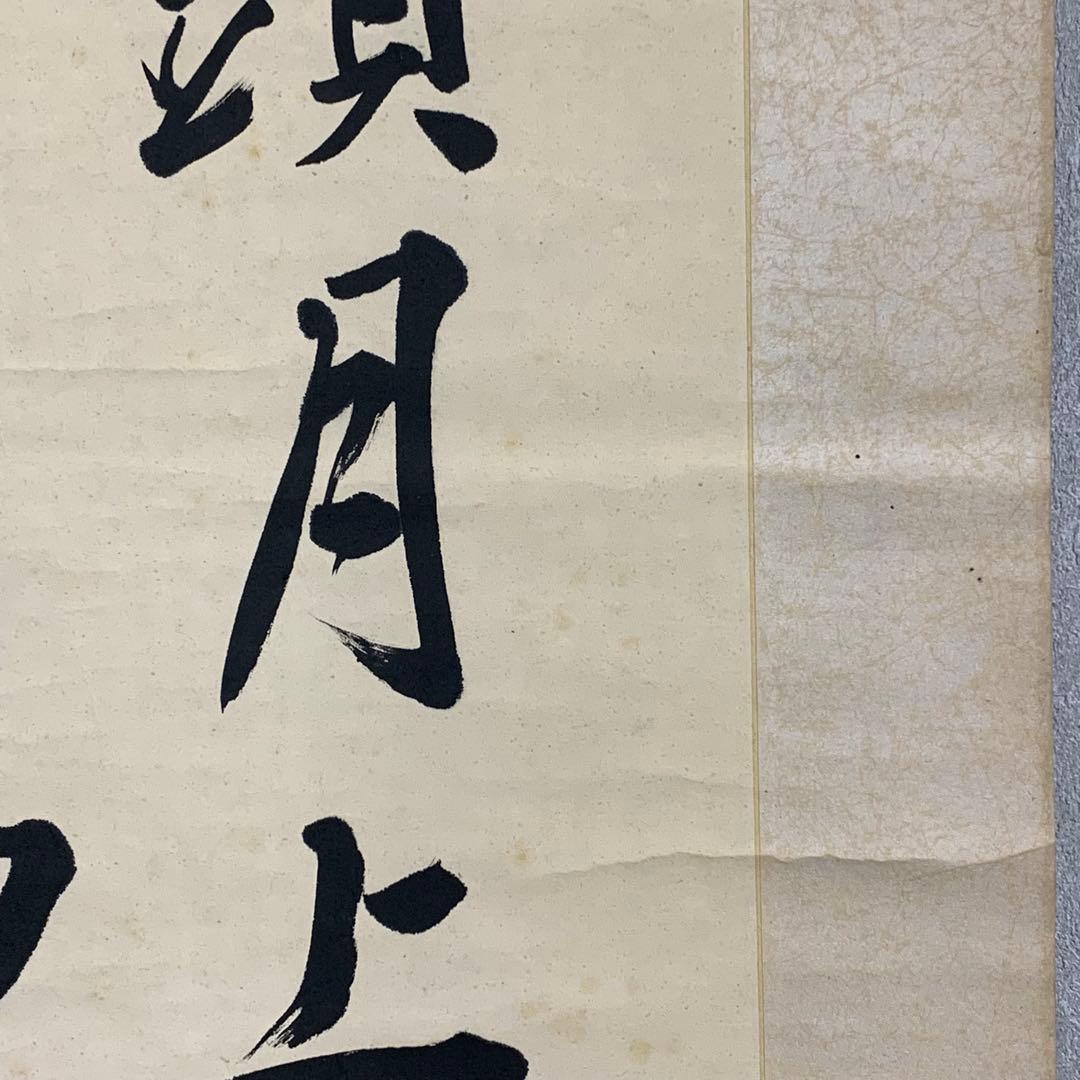 頭月上